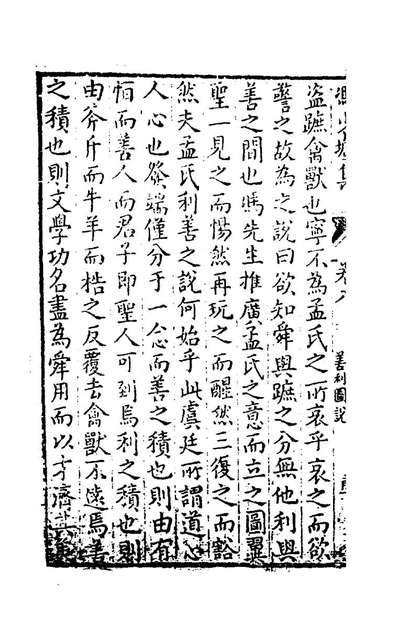 盜蹠禽獸也寧不為孟氏之所哀乎哀之而欲
警之故為之說曰欲知舜與蹠之分無他利與
善之間也馮先生推廣孟氏之意而立之圖翼
聖一見之而惕然再玩之而醒然三復之而豁
然夫孟氏利善之說何始乎此虞廷所謂道心
人心也發端僅分于一念而善之積也則由有
恒而善人而君子即聖人可到焉利之積也則
由斧斤而牛羊而梏之反覆去禽獸不遠焉善
之積也則文學功名盡為舜用而以才濟其
卷八
善利圖說